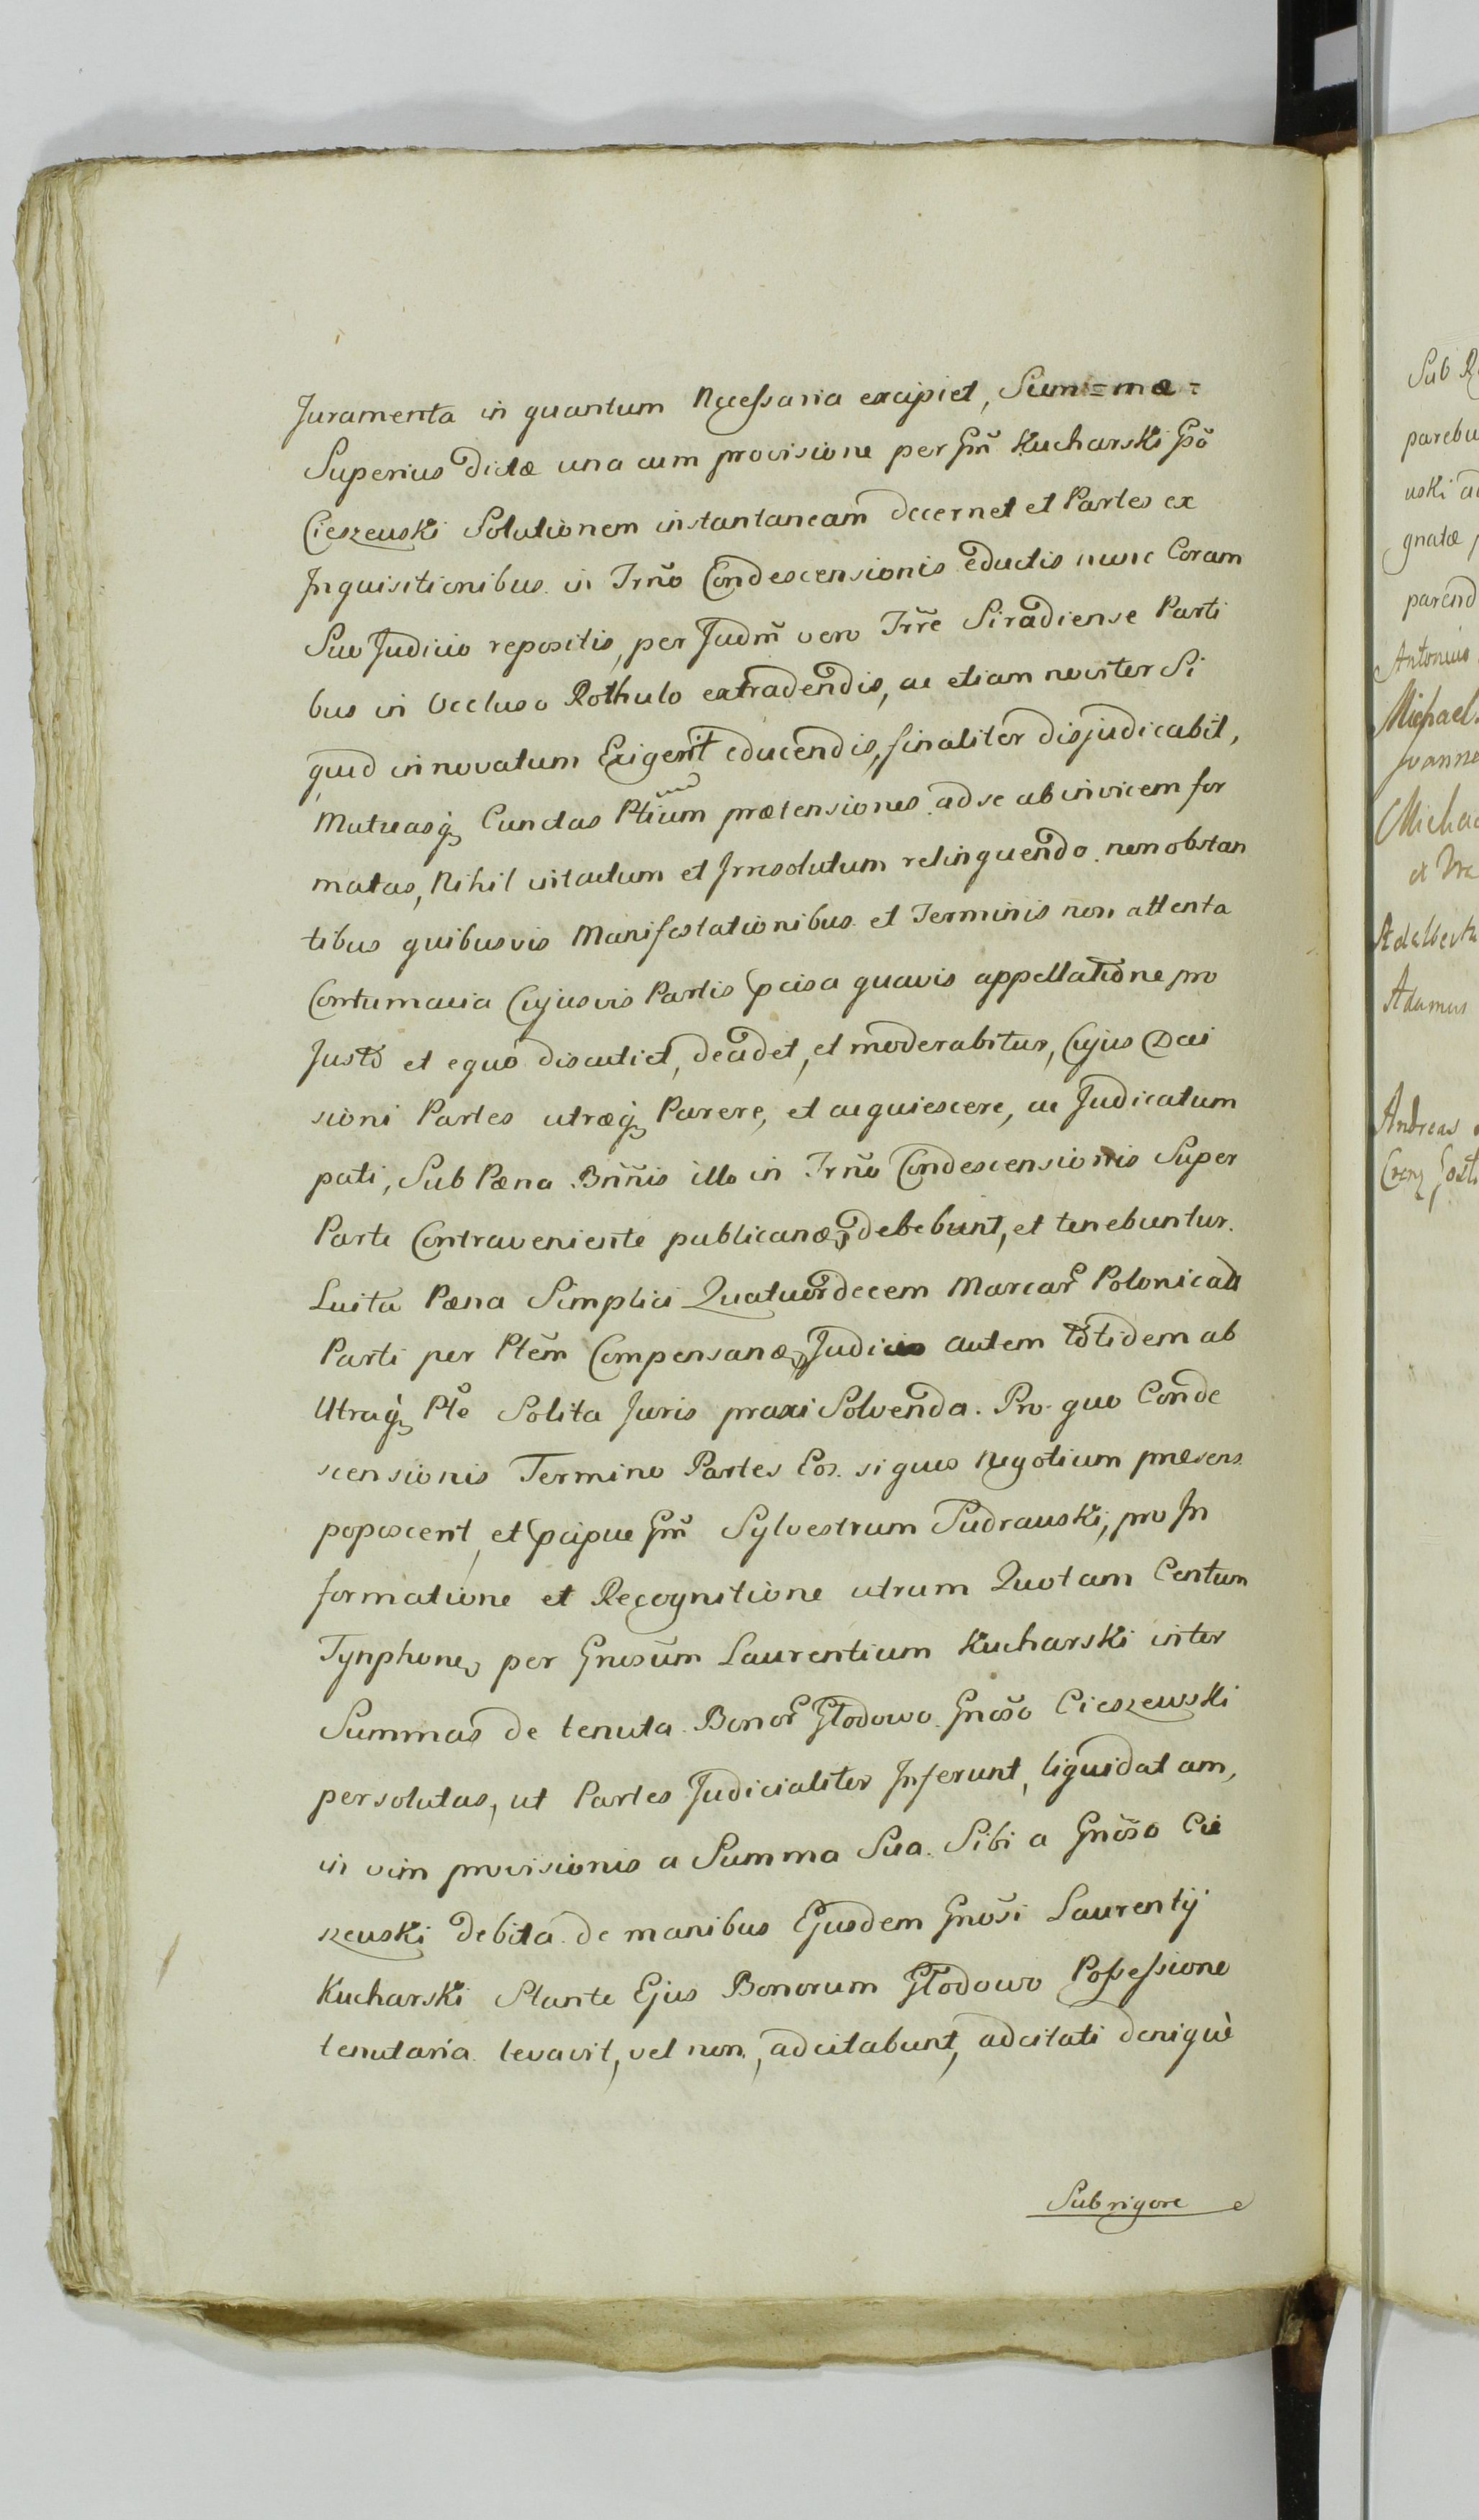 Juramenta in quantum Necessaria excipiet, Sum=mæ=
Superius dictæ una cum provisione per Gm̃ Kucharski Gõ
Cieszewski Solutionem instantaneam decernet et Partes ex
Inquisitionibus in Trño Condescensionis eductis nunc Coram
Suo Judicio repositis, per Judm̃ vero Tr̃re Siradiense Parti
bus in Occluso Rothulo extradendis, ac etiam noviter Si
quid innovatum Exigerit educendis, finaliter disjudicabit,
Mutuasq̃ Cunctas Ptium prætensiones ad se ab invicem for
matas, Nihil intactum et Irresolutum relinquendo non obstan
tibus quibusvis Manifestationibus et Terminis non attenta
Contumacia Cujusvis Partis pcisa quavis appellatione pro
Justo et equo discutiet, decidet, et moderabitur, Cujus Deci
sioni Partes utræq̃ Parere, et acquiescere, ac Judicatum
pati, Sub Pæna Bññis illo in Trño Condescensionis Super
Parte Contraveniente publicanæ, debebunt, et tenebuntur.
Luita Pæna Simplici Quatuordecem Marcar Polonicali
Parti per Ptẽm Compensanæ, Judicio autem totidem ab
Utraq̃ Pte Solita Juris praxi Solvenda. Pro quo Conde
scensionis Termino Partes Eos. si quos negotium præsens
poposcerit, et pcipue Gm̃ Sylvestrum Pudrauski, pro In
formatione et Recognitione utrum Quotam Centum
Tynphones per Gnosum Laurentium Kucharski inter
Summas de tenuta Bonor Głodowo Gnoso Cieszewski
persolutas, ut Partes Judicialiter Inferunt, liquidatam,
in vim provisionis a Summa Sua Sibi a Gnoso Cie
szeuski debita de manibus Ejusdem Gnosi Laurentij
Kucharski Stante Ejus Bonorum Głodowo Possessione
tenutaria levavit, vel non, adcitabunt, adcitati denique
Sub rigore
Sub
parebu
uski
gnatæ
parend
Antonius
Michael
Joannes
Micha
et
Adalbertu
Adamus
Andreas